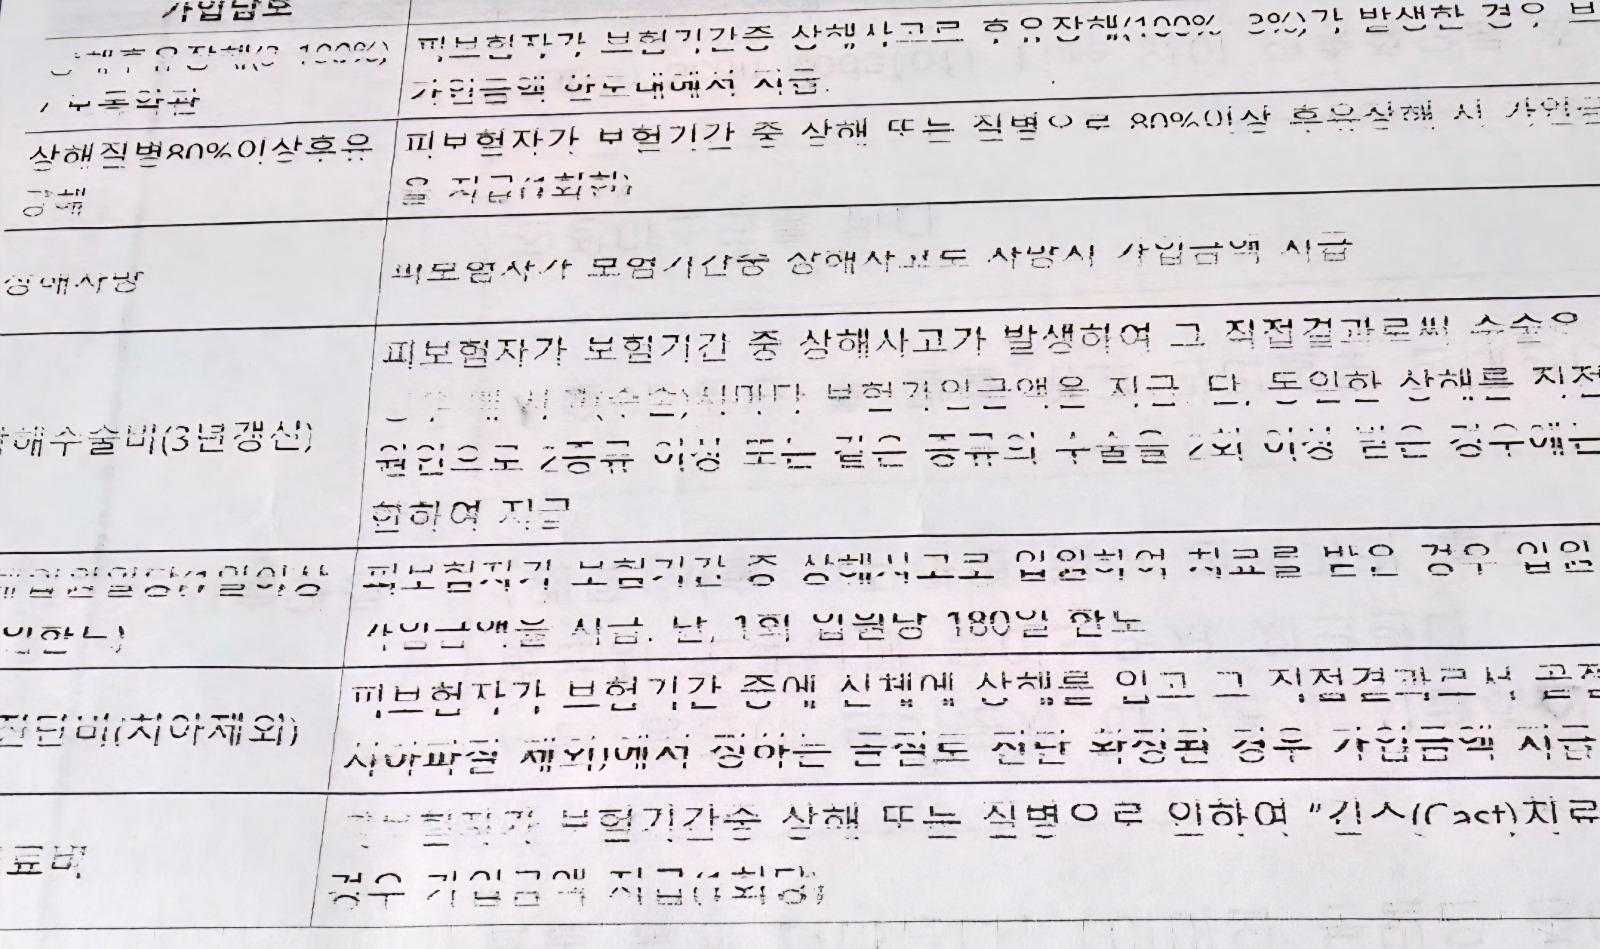 가입담보
피보험자가 보험기간중 상해사고로 후유장해(100%~3%)가 발생한 경우 보
상해후유장해(3~100%)
보통약관
가입금액 한도내에서 지급.
상해질병80%이상후유
피보험자가 보험기간 중 상해 또는 질병으로 80%이상 후유장해 시 가입금
장해
을 지급(1회한)
상해사망
피보험자가 보험기간중 상해사고로 사망시 가입금액 지급
피보험자가 보험기간 중 상해사고가 발생하여 그 직접결과로써 수술을
보험가입금액을 지급. 단, 동일한 상해를 직접
해수술비(3년갱신)
원인으로 2종류 이상 또는 같은 종류의 수술을 2회 이상 받은 경우에는
한하여 지급
입원일당(1일이상
피보험자가 보험기간 중 상해사고로 입원하여 치료를 받은 경우 입원
가입금액을 지급. 단, 1회 입원당 180일 한도
피보험자가 보험기간 중에 신체에 상해를 입고 그 직접결과로써 골절
진단비(치아제외)
치아파절 제외)에서 정하는 골절로 진단 확정된 경우 가입금액 지급
피보험자가 보험기간중 상해 또는 질병으로 인하여 "깁스(Cast)치료
료비
경우 가입금액 지급(1회당)